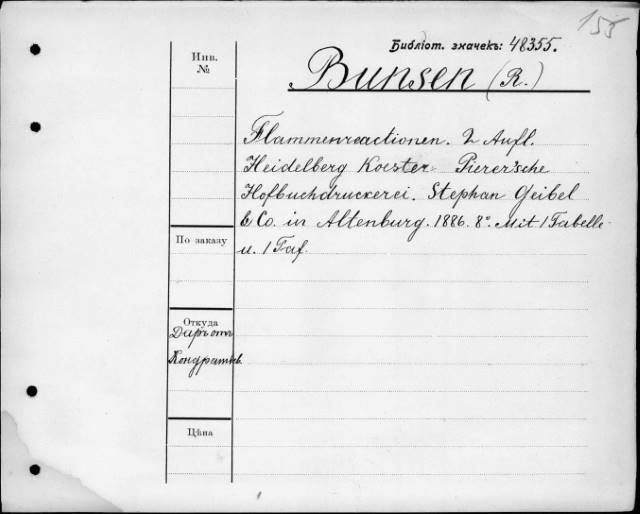 155
Библіот. значекъ: 48355.
Инв.
№
Bunsen (R.)
Flammenreactionen. 2 Aufl.
Heidelberg Koester Pierer'sche
Hofbuchdruckerei. Stephan Geibel
& Co. in Altenburg. 1886. 8°. Mit 1 Tabelle
u. 1 Taf.
По заказу
Откуда
Даръ отъ
Кондратьев.
Цѣна